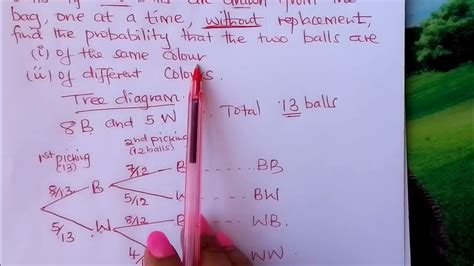 bag, one at a time, without replacement,
find the probability that the two balls are
(i) of the same colour
(ii) of different Colours.
Tree diagram. Total 13 balls
8B and 5W
1st picking
(13)
2nd picking
(12 balls)
8/13 B 7/12 B BB
5/12 W BW
5/13 W 8/12 B WB
4/ W WW